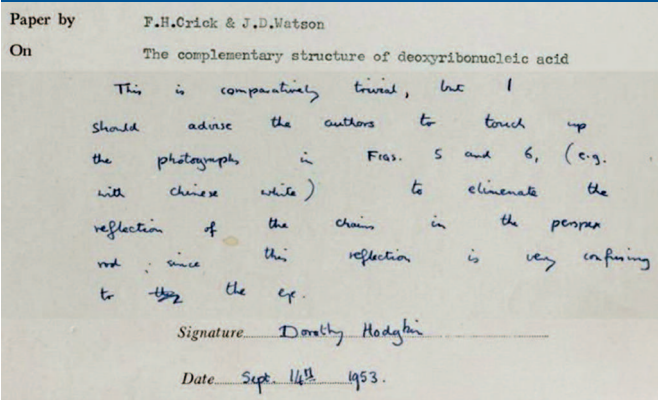 Paper by F.H.Crick & J.D.Watson
On The complementary structure of deoxyribonucleic acid
This is comparatively trivial, but I
should advise the authors to touch up
the photographs in Figs. 5 and 6, (e.g.
with chinese white) to elimenate the
reflection of the chains in the perspex
rod, since this reflection is very confusing
to the eye.
Signature Dorothy Hodgkin
Date Sept. 14th 1953.